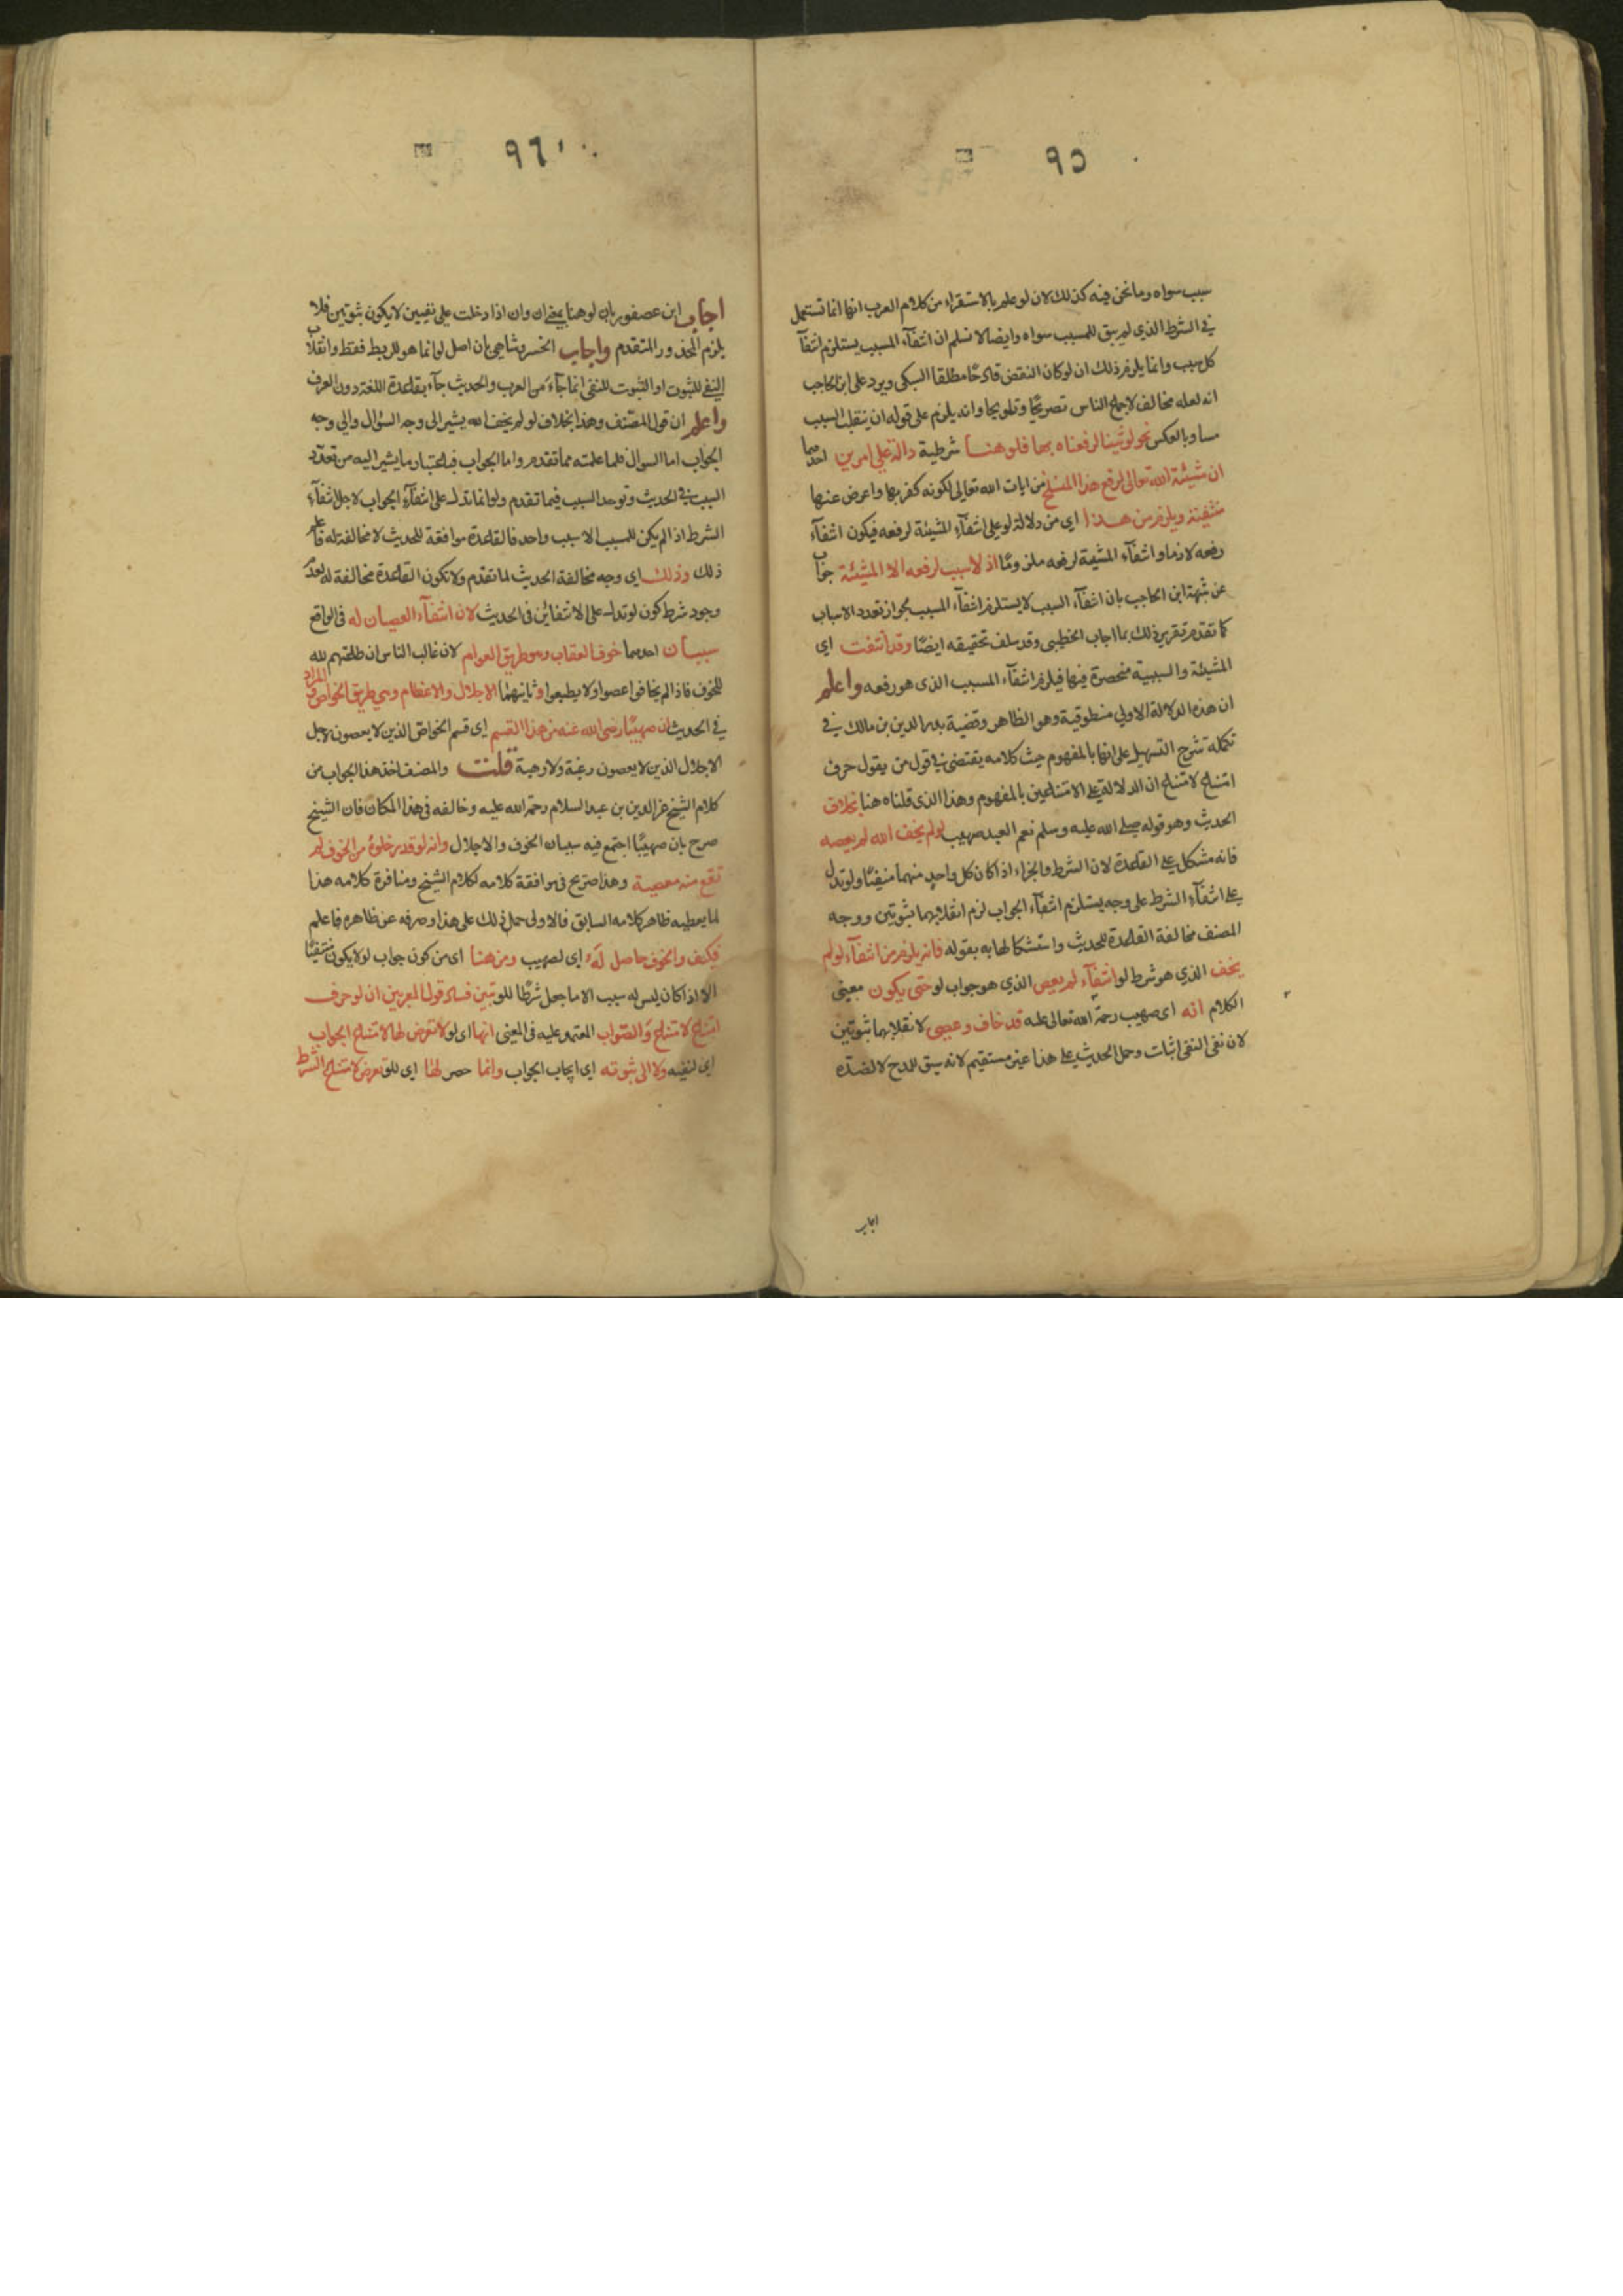 ٩٥
سبب سواه وما نحن فيه كذلك لان لو علم بالاستقراء من كلام العرب انها انما تستعمل
في الشرط الذي لم يبق للمسبب سواه وايضا لا نسلم ان انتفآء المسبب يستلزم انتفآ
كل سبب وانما يلزم ذلك ان لو كان النقض قادحًا مطلقا السبكى ويرد على ابن الحاجب
انه لعله مخالف لاجماع الناس تصريحًا وتلويحا وانه يلزم على قوله ان ينقلب السبب
مساو بالعكس نحو لو شينا لرفعناه بها فلو هنا شرطية دالة على امرين احدهما
ان مشيئة الله تعالى لرفع هذا المنسلخ من ايات الله تعالى لكونه كفر بها واعرض عنها
منفية ويلزم من هذا اي من دلالة لو على انتفآء المشيئة لرفعه فيكون انتفآء
رفعه لازما وانتفآء المشيئة لرفعه ملزومًا اذ لا سبب لرفعه الا المشيئة جواب
عن شبهة ابن الحاجب بان انتفآء السبب لا يستلزم انتفآء المسبب لجواز تعدد الاسباب
كما تقدم تقرير ذلك بما اجاب الخطيبى وقد سلف تحقيقه ايضًا وقد انتفت اى
المشيئة والسببية منحصرة فيها فيلزم انتفآء المسبب الذى هو رفعه واعلم
ان هذه الدلالة الاولى منطوقية وهو الظاهر وقضية بدر الدين بن مالك في
تكملة شرح التسهيل على انها بالمفهوم حيث كلامه يقتضى في قول من يقول حرف
امتناع لامتناع ان الدلالة على الامتناعين بالمفهوم وهذا الذى قلناه هنا بخلاف
الحديث وهو قوله صلى الله عليه وسلم نعم العبد صهيب لو لم يخف الله لم يعصه
فانه مشكل على القاعدة لان الشرط والجزاء اذا كان كل واحد منهما منفيًا ولو تدل
على انتفآء الشرط على وجه يستلزم انتفآء الجواب لزم انقلابهما ثبوتين ووجه
المصنف مخالفة القاعدة للحديث واستشكالها به بقوله فانه يلزم من انتفآء لو لم
يخف الذي هو شرط لو انتفآء لم يعص الذي هو جواب لو حتى يكون معنى
الكلام انه اى صهيب رحمة الله تعالى عليه قد خاف وعصى لانقلابهما ثبوتين
لان نفى النفى اثبات وحمل الحديث على هذا غير مستقيم لانه سيق للمدح لا لضده
اجاب
٩٦
اجاب ابن عصفور بان لو هنا بمعنى ان وان اذا دخلت على نفيين لا يكون ثبوتين فلا
يلزم المحذور المتقدم واجاب الخسروشاهى بأن اصل لو انما هو للربط فقط وانقلاب
النفى للثبوت او الثبوت للنفى انما جآء من العرب والحديث جآء بقاعدة اللغة دون العرف
واعلم ان قول المصنف وهذا بخلاف لو لم يخف الله يشير الى وجه السؤال والى وجه
الجواب اما السوال فلما علمته مما تقدم واما الجواب فباعتبار ما يشير اليه من تعدد
السبب في الحديث وتوحد السبب فيما تقدم ولو انما تدل على انتفآء الجواب لاجل انتفآء
الشرط اذا لم يكن للسبب الا سبب واحد فالقاعدة موافقة للحديث لا مخالفة له فاعلم
ذلك وذلك اى وجه مخالفة الحديث لما تقدم ولا تكون القاعدة مخالفة له لعدم
وجود شرط كون لو تدل على الانتفائين فى الحديث لان انتفآء العصيان له فى الواقع
سببان احدهما خوف العقاب وهو طريق العوام لان غالب الناس ان طاعتهم لله
للخوف فاذا لم يخافوا عصوا ولا يطيعوا وثانيهما الاجلال والاعظام وهي طريق الخواص والمراد
في الحديث ان صهيبًا رضى الله عنه من هذا القسم اى قسم الخواص الذين لا يعصون لاجل
الاجلال الذين لا يعصون رغبة ولا رهبة قلت والمصنف اخذ هذا الجواب من
كلام الشيخ عز الدين بن عبد السلام رحمة الله عليه وخالفه فى هذا المكان فان الشيخ
صرح بان صهيبًا اجتمع فيه سببان الخوف والاجلال وانه لو قدر خلوه من الخوف لم
تقع منه معصية وهذا صريح فى موافقة كلامه لكلام الشيخ ومنافرة كلامه هذا
لما يعطيه ظاهر كلامه السابق فالاولى حمل ذلك على هذا وصرفه عن ظاهره فاعلم
فكيف والخوف حاصل له اى لصهيب ومن هنا اى من كون جواب لو لا يكون منتفيًا
الا اذا كان ليس له سبب الا ما جعل شرطًا للو تبين فساد قول المعربين ان لو حرف
امتناع لامتناع والصّواب المعتمد عليه فى المعنى انها اى لو لا تعرض لها لامتناع الجواب
اى لنفيه ولا الى ثبوته اى ايجاب الجواب وانما حصر لها اى للو تعرض لامتناع الشرط